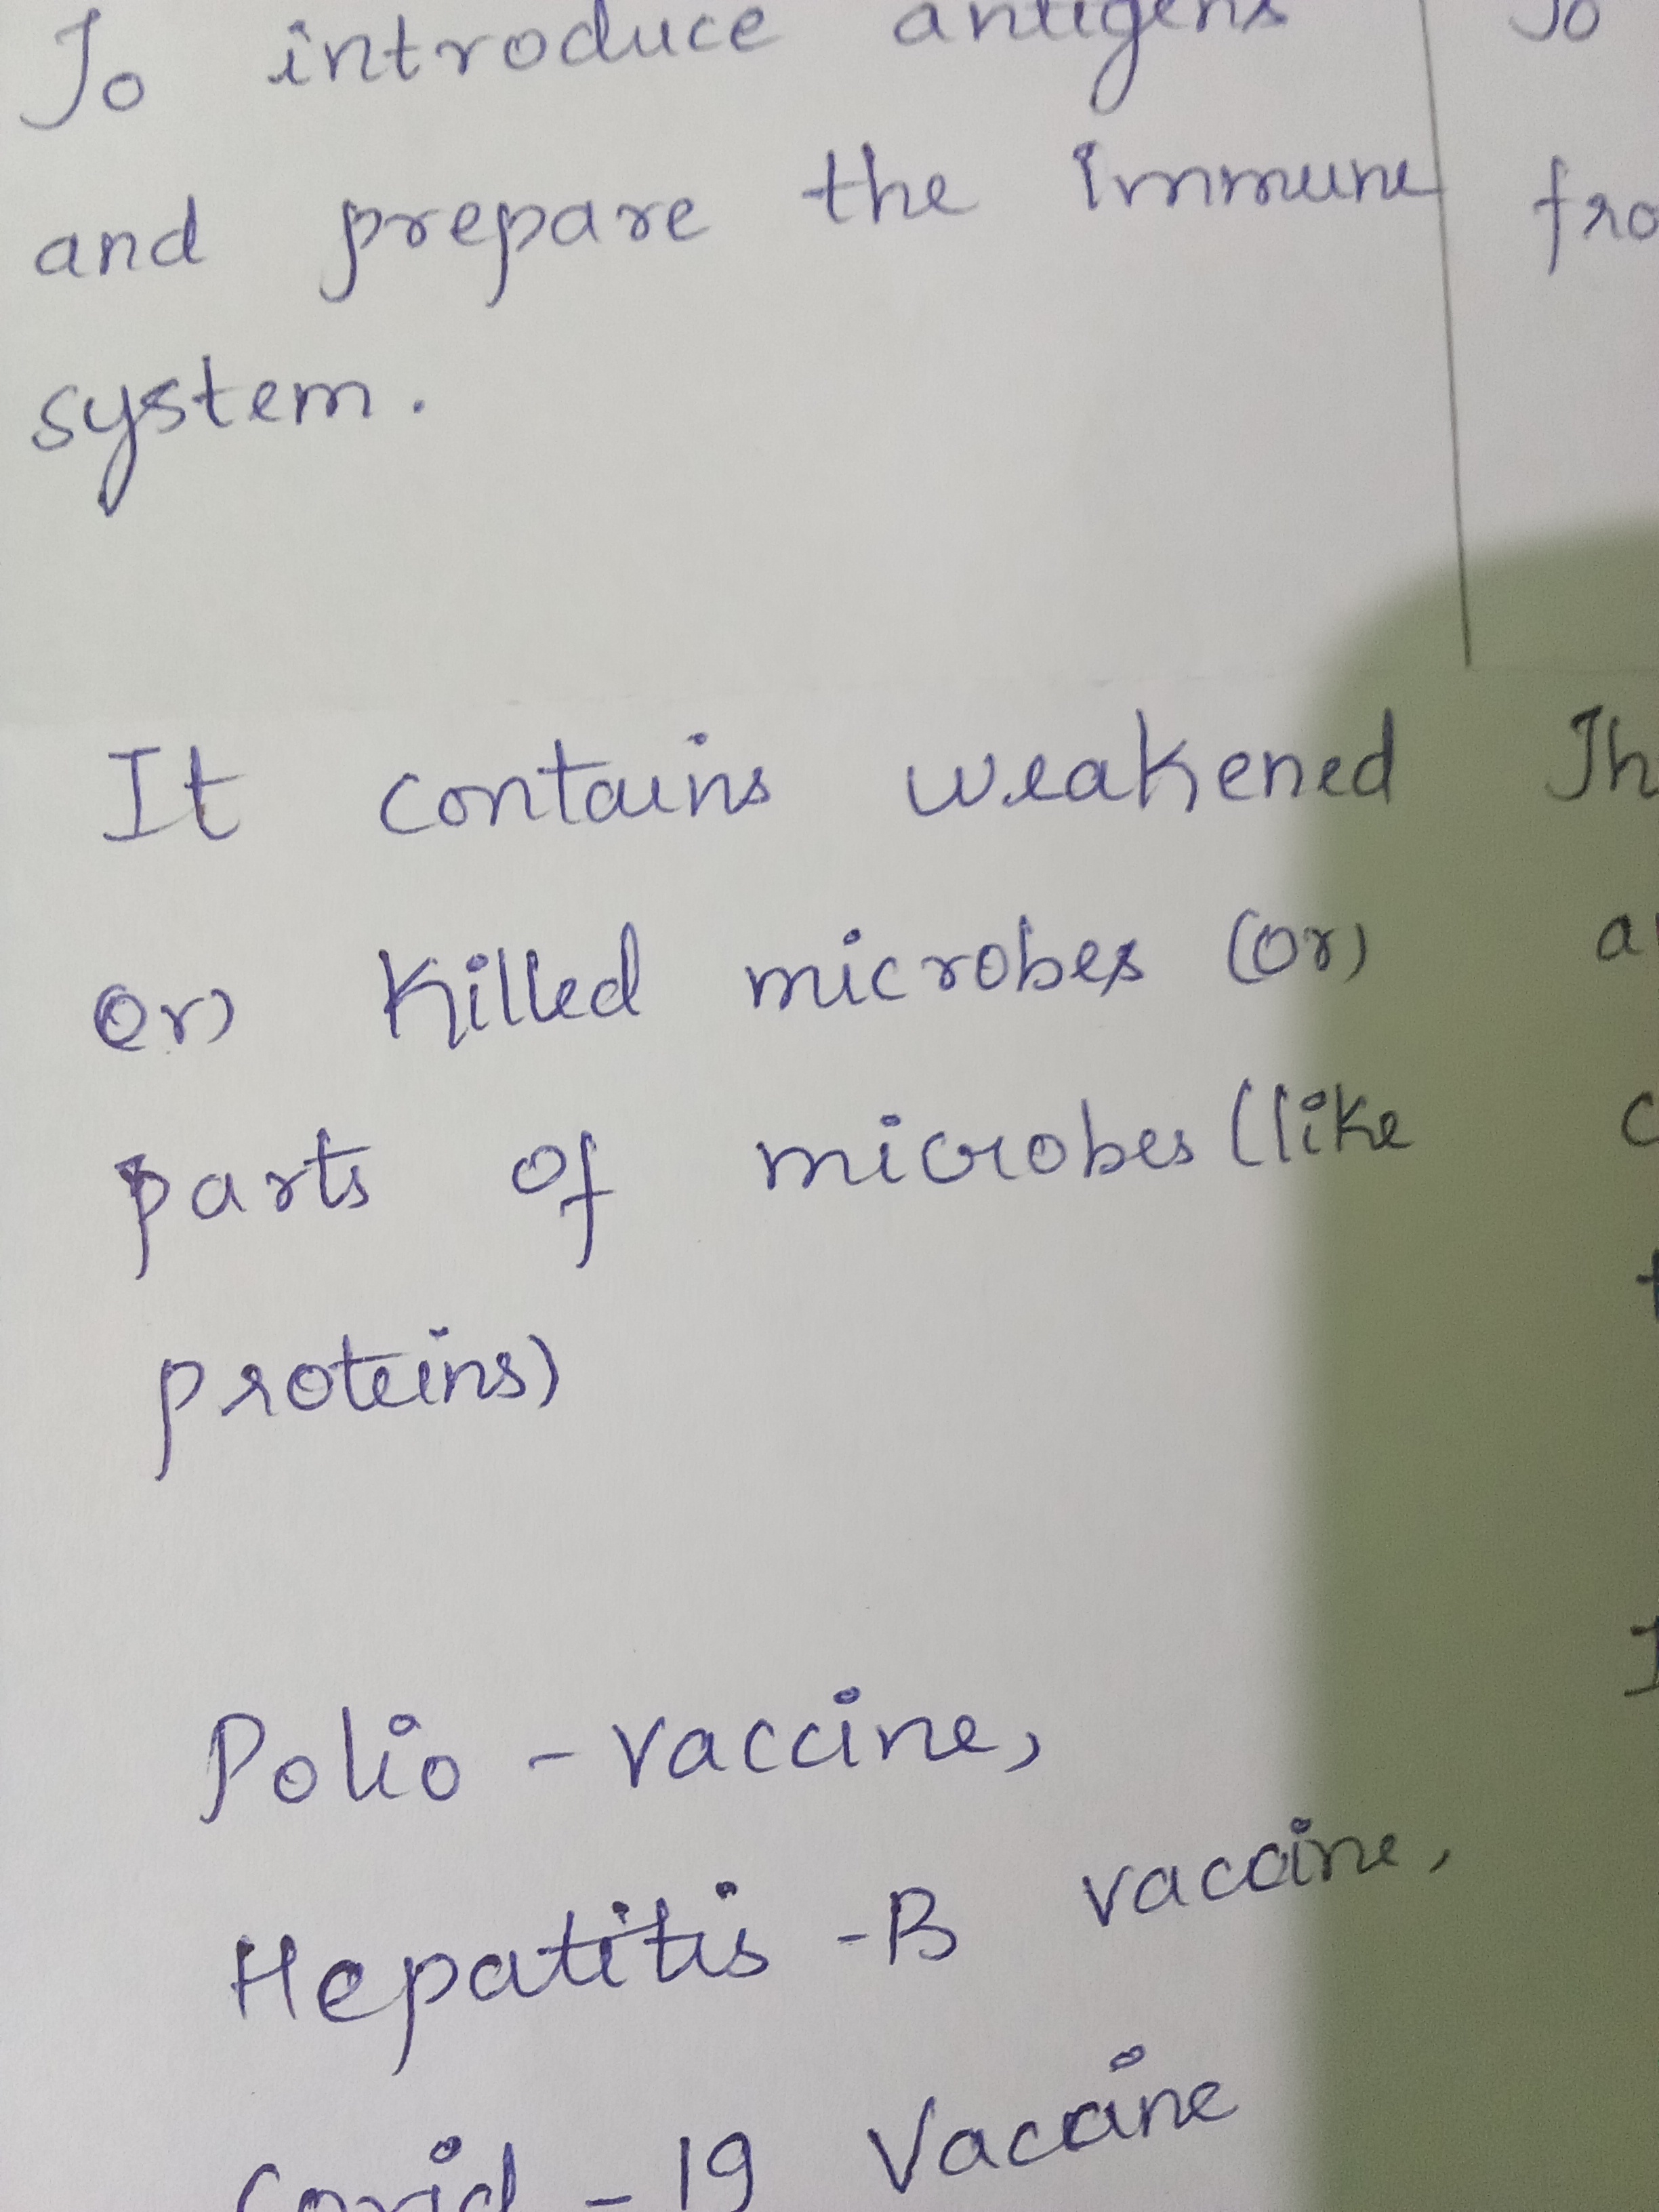 To introduce antigens
and prepare the immune
system.
It contains weakened
(or) killed microbes (or)
parts of microbes (like
proteins)
Polio - vaccine,
Hepatitis - B vaccine,
Covid - 19 Vaccine
To